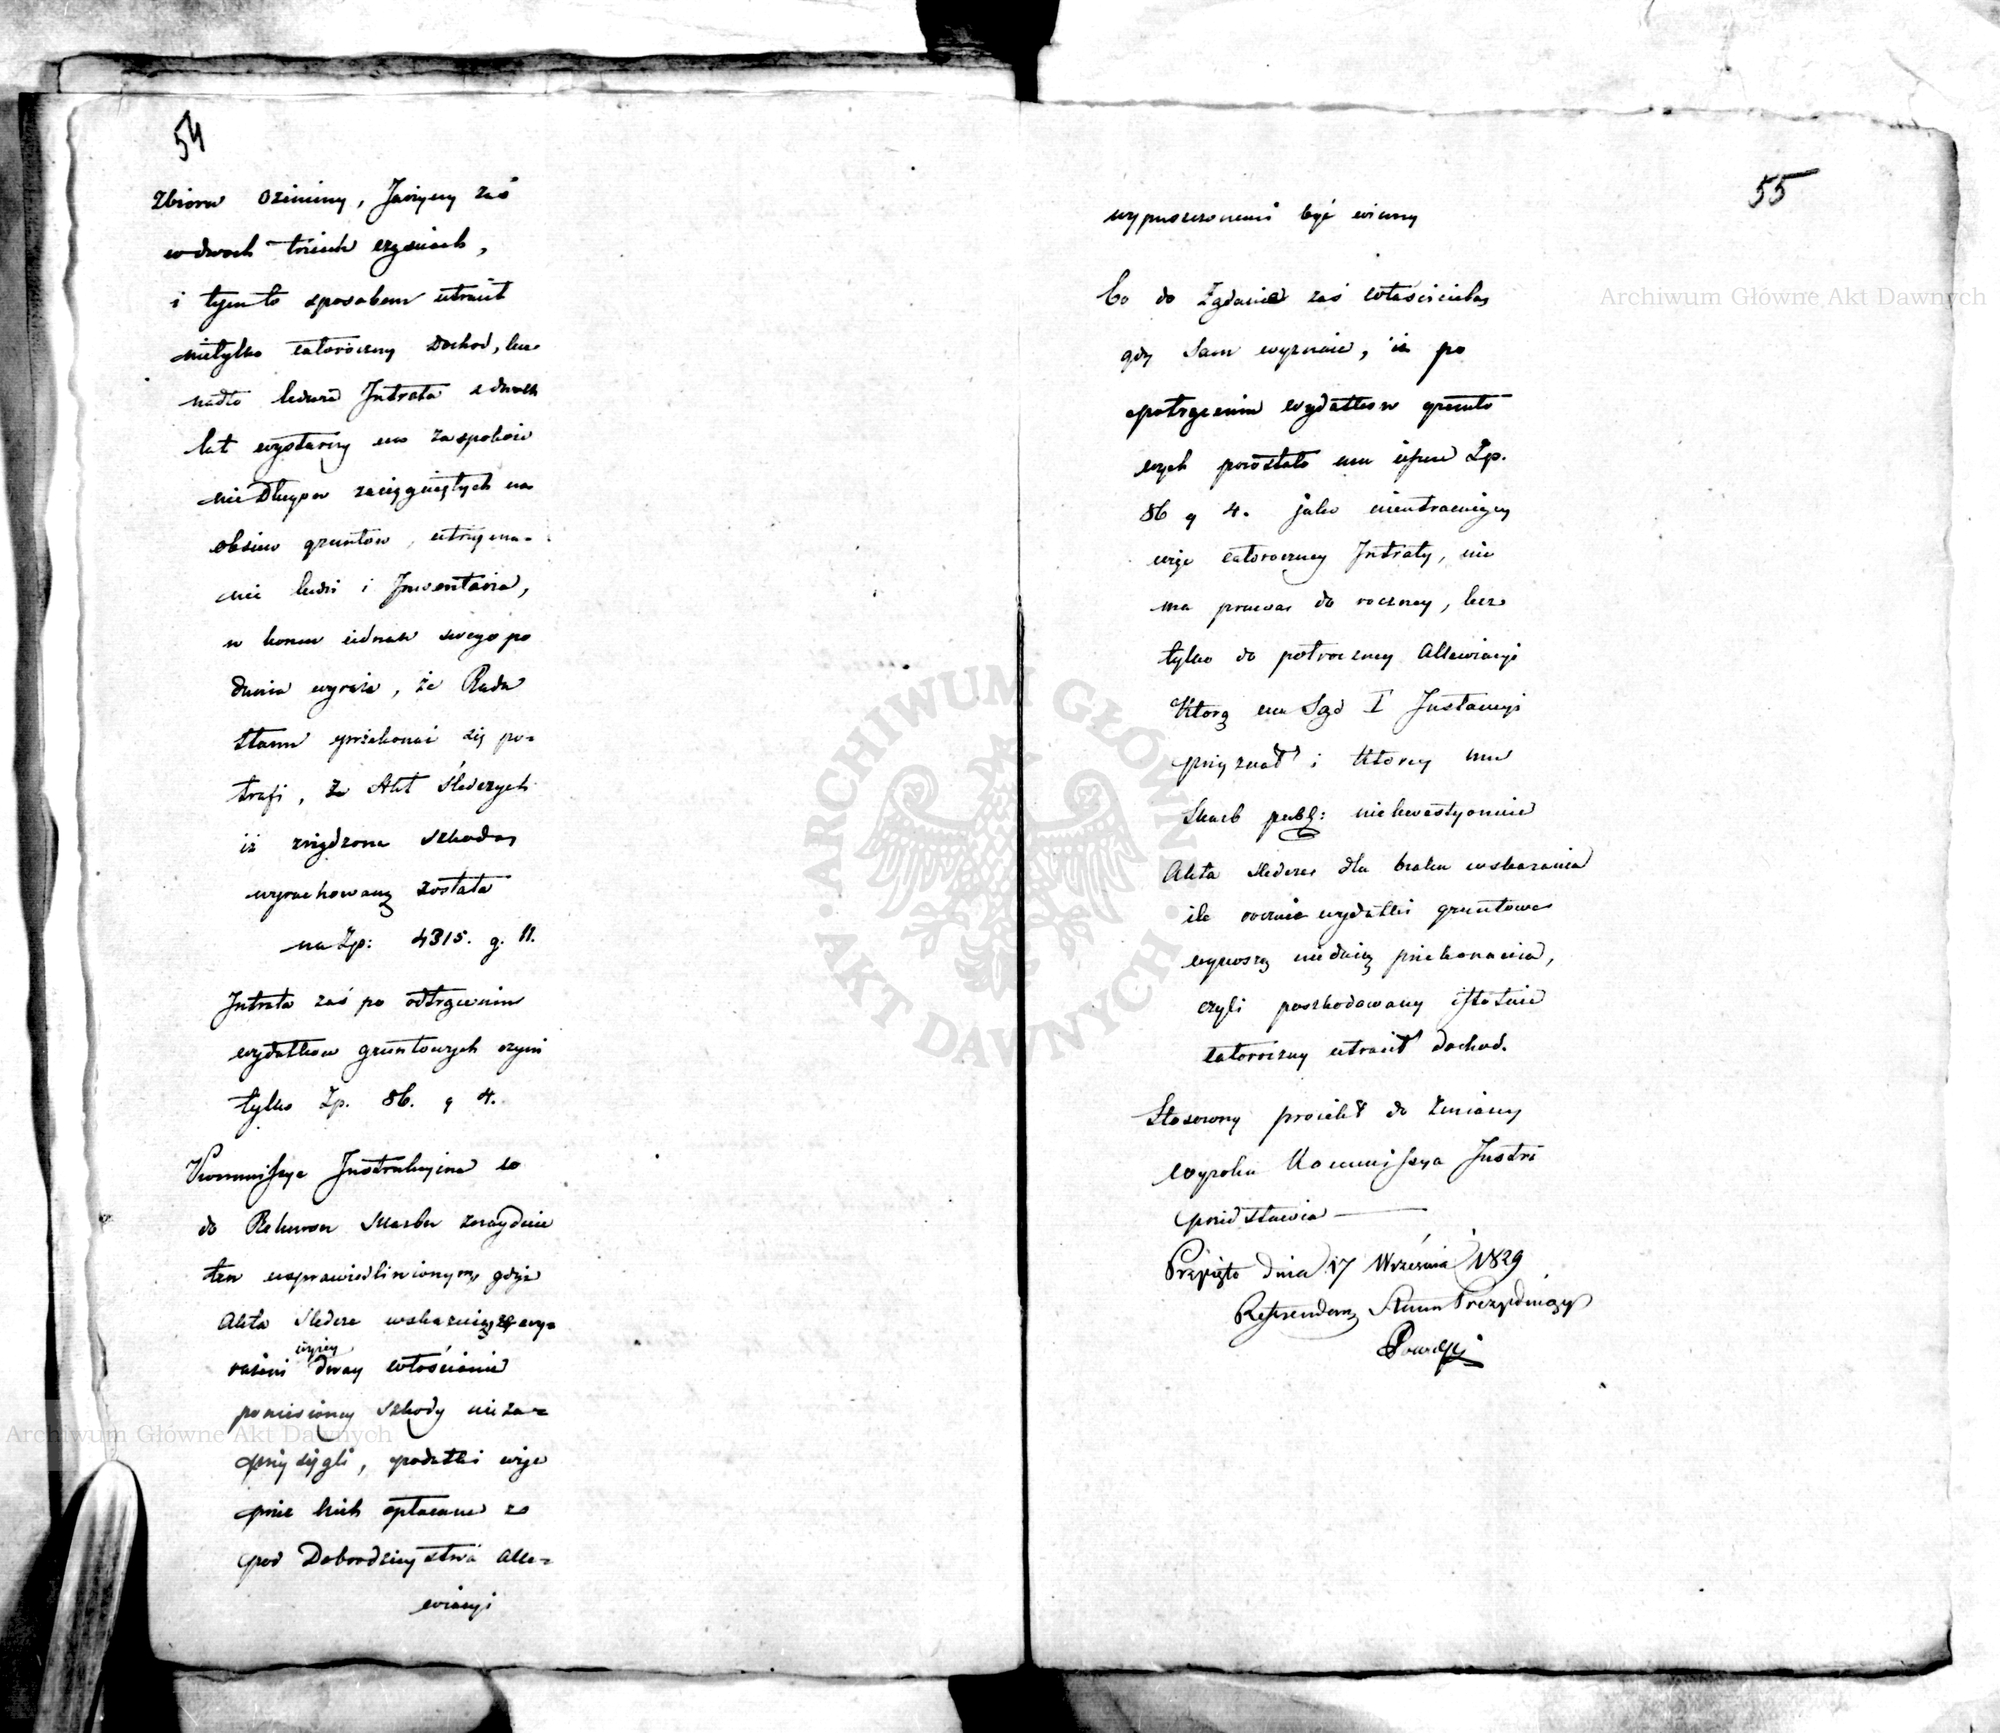 54
Zbioru Oziminy, Jarzyny zaś
w dwoch trzecich częściach,
i tym to sposobem utracił
nietylko całoroczny Dochod, lecz
nadto ledwie Intrata z dwoch
lat wystarczy na zaspokoie
nie Długow zaciągniętych na
obsiew gruntow, utrzyma-
nie ludzi i Inwentarza,
w koncu iednak swego po
dania wyraża, że Rada
Stanu przekonać się po-
trafi, Ze Akt Śledczych
iż zrządzona szkoda
wyrachowaną została
na Zp: 4315. g. 11.
Intrata zaś po odtrąceniu
wydatkow gruntowych czyni
tylko Zp. 86. g 4.
Kommissya Instrukcyina co
do Rekursu Skarbu znayduie
ten usprawiedliwionym, gdyż
Akta Śledcze wskazuią że wy-
rażeni wyżey dway włościanie
poniesioney Szkody nie za-
przysięgli, podatki więc
przez nich opłacane z
pod Dobrodzieystwa Alle-
wiacyi
55
wypuszczonemi być winny
Co do Żądania zaś właściciela
gdy Sam wyznaie, iż po
potrąceniu wydatkow grunto
wych pozostało mu ieszcze Zp.
86 g 4. jako nieutracaiący
więc całoroczney Intraty, nie
ma prawa do roczney, lecz
tylko do połroczney Allewiacyi
Ktorą mu Sąd I Instancyi
przyznał i ktorey mu
Skarb publ: niekwestyonuie
Akta śledcze dla braku wskazania
ile rocznie wydatki gruntowe
wynoszą niedaią przekonania,
czyli poszkodowany istotnie
całoroczny utracił dochod.
Stosowny proiekt do Zmiany
wyroku Kommissya Instr:
przedstawia
Przyięto dnia 17 Września 1829
Referendarz Stanu Prezyduiący